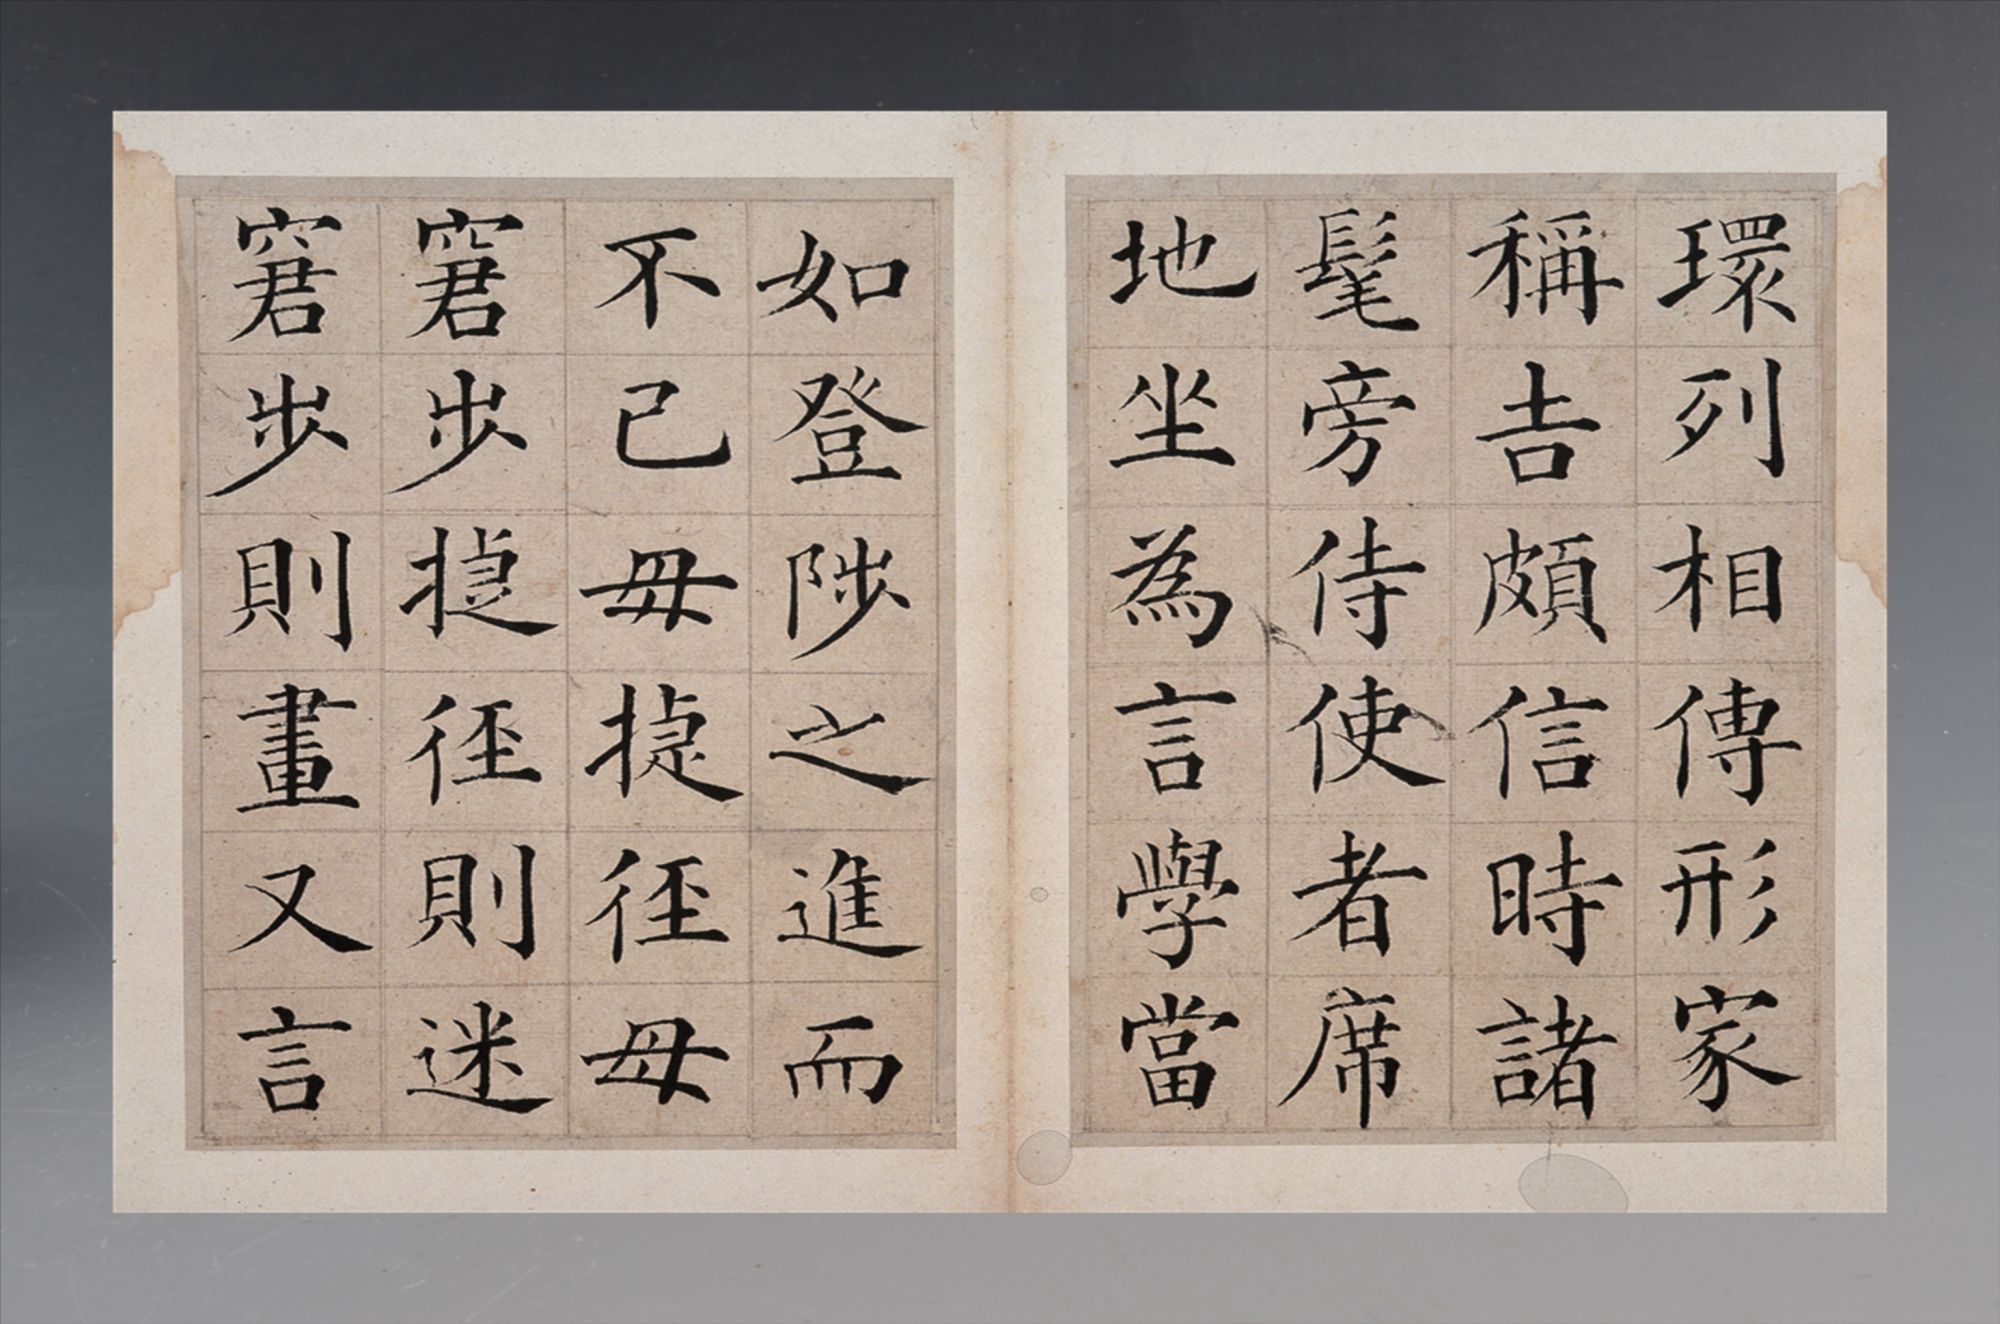 環列相傳形家
稱吉頗信時諸
髦旁侍使者席
地坐為言學當
如登陟之進而
不已毋捷徑毋
窘步捷徑則迷
窘步則畫又言